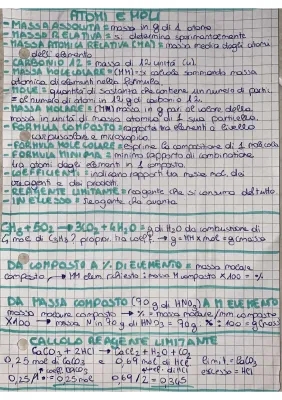 ATOMI e MOLI
- MASSA ASSOLUTA = massa in g di 1 atomo
- MASSA RELATIVA = si determina sperimentalmente
- MASSA ATOMICA RELATIVA (MA) = massa media degli atomi
dell'elemento
- CARBONIO 12 = massa di 12 unità (u)
- MASSA MOLECOLARE = (MM) = si calcola sommando massa
atomica di elementi nella formula
- MOLE = quantità di sostanza che contiene un numero di partic.
= al numero di atomi in 12 g di carbonio 12.
- MASSA MOLARE = (MM) massa in g par al valore della
massa in unità di massa atomica di 1 sua particella
- FORMULA COMPOSTO = rapporto tra elementi a livello
macroscopico
- FORMULA MOLECOLARE = esprime la composizione di 1 molecola
- FORMULA MINIMA = minimo rapporto di combinazione
tra atomi degli elementi in 1 composto
- COEFFICIENTI = indicano rapporti tra masse mol. dei
reagenti e dei prodotti
- REAGENTE LIMITANTE = reagente che si consuma del tutto
- IN ECCESSO = reagente che avanza
+ 5O2 → 3CO2 + 4H2O = g di H2O da combustione di
4 mol di C3H8? propor. tra coeff. → g = MM x mol = g (massa)
DA COMPOSTO A % DI ELEMENTO = massa molare
composto → MM elem. richiesto : massa M composto X100 = %
DA MASSA COMPOSTO (90 g di HNO3) A M ELEMENTO
massa molare composto → % = massa molare/mm composto
X100 → massa N in 90 g di HNO3 = 90 g · % : 100 = g (massa)
CALCOLO REAGENTE LIMITANTE
CaCO3 + 2HCl → CaCl2 + H2O + CO2
0,25 mol di CaCO3 e 0,69 mol di HCl limit. = CaCO3
coeff. di HCl eccesso = HCl
0,25/1 = 0,25 mol 0,69/2 = 0,345